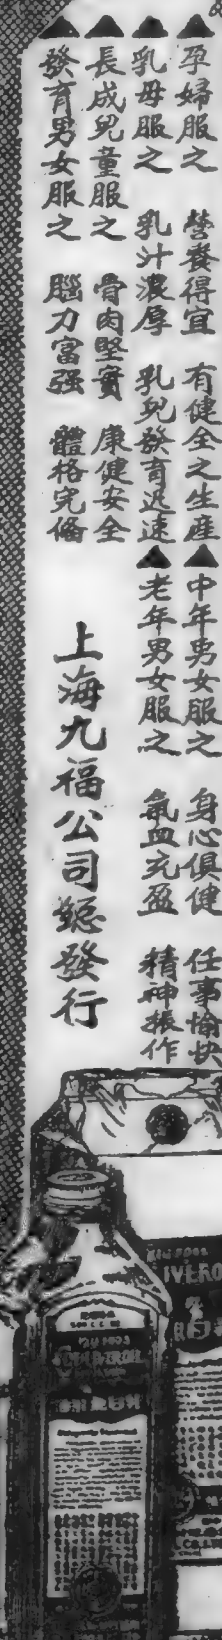 ▲孕婦服之 營養得宜 有健全之生產
▲乳母服之 乳汁濃厚 乳兒發育迅速
▲長成兒童服之 骨肉堅實 康健安全
▲發育男女服之 腦力富强 體格完備
▲中年男女服之 身心俱健 任事愉快
▲老年男女服之 氣血充盈 精神振作
上海九福公司總發行